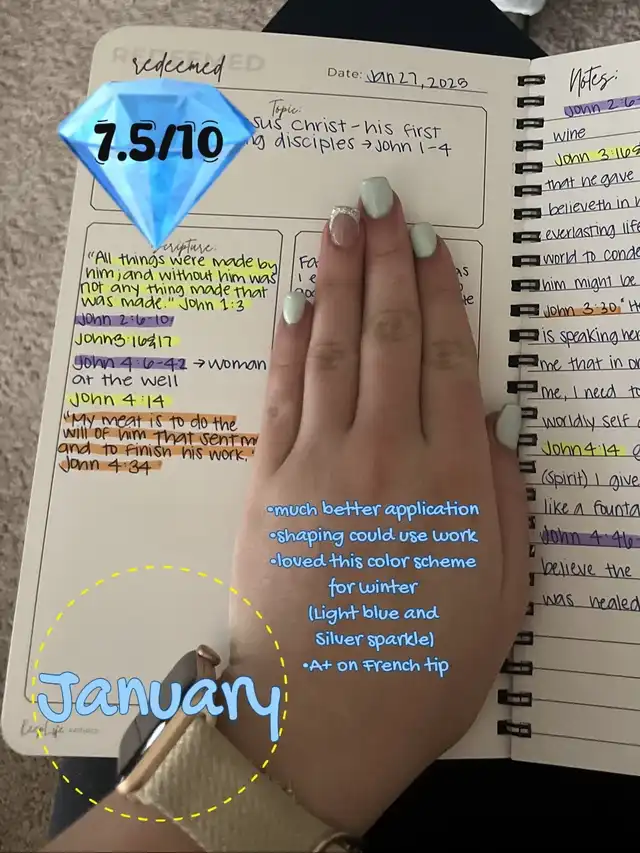 REDEEMED
redeemed
Date: Jan 27, 2025
Topic:
sus Christ - his first
disciples → John 1-4
7.5/10
Scripture:
"All things were made by
him; and without him was
not any thing made that
was made." John 1:3
John 2:6-10
John 3:16&17
John 4:6-42 → woman
at the well
John 4:14
"My meat is to do the
will of him that sent m
and to finish his work."
John 4:34
Notes:
John 2:6-
wine
John 3:16&
that he gave
believeth in h
everlasting life
world to conde
him might be
John 3:30 "He
is speaking her
me that in or
me, I need to
worldly self
John 4:14
(spirit) I give
like a founta
John 4:46-
believe the
was healed
•much better application
•shaping could use work
•loved this color scheme
for winter
(Light blue and
Silver sparkle)
•A+ on French tip
January